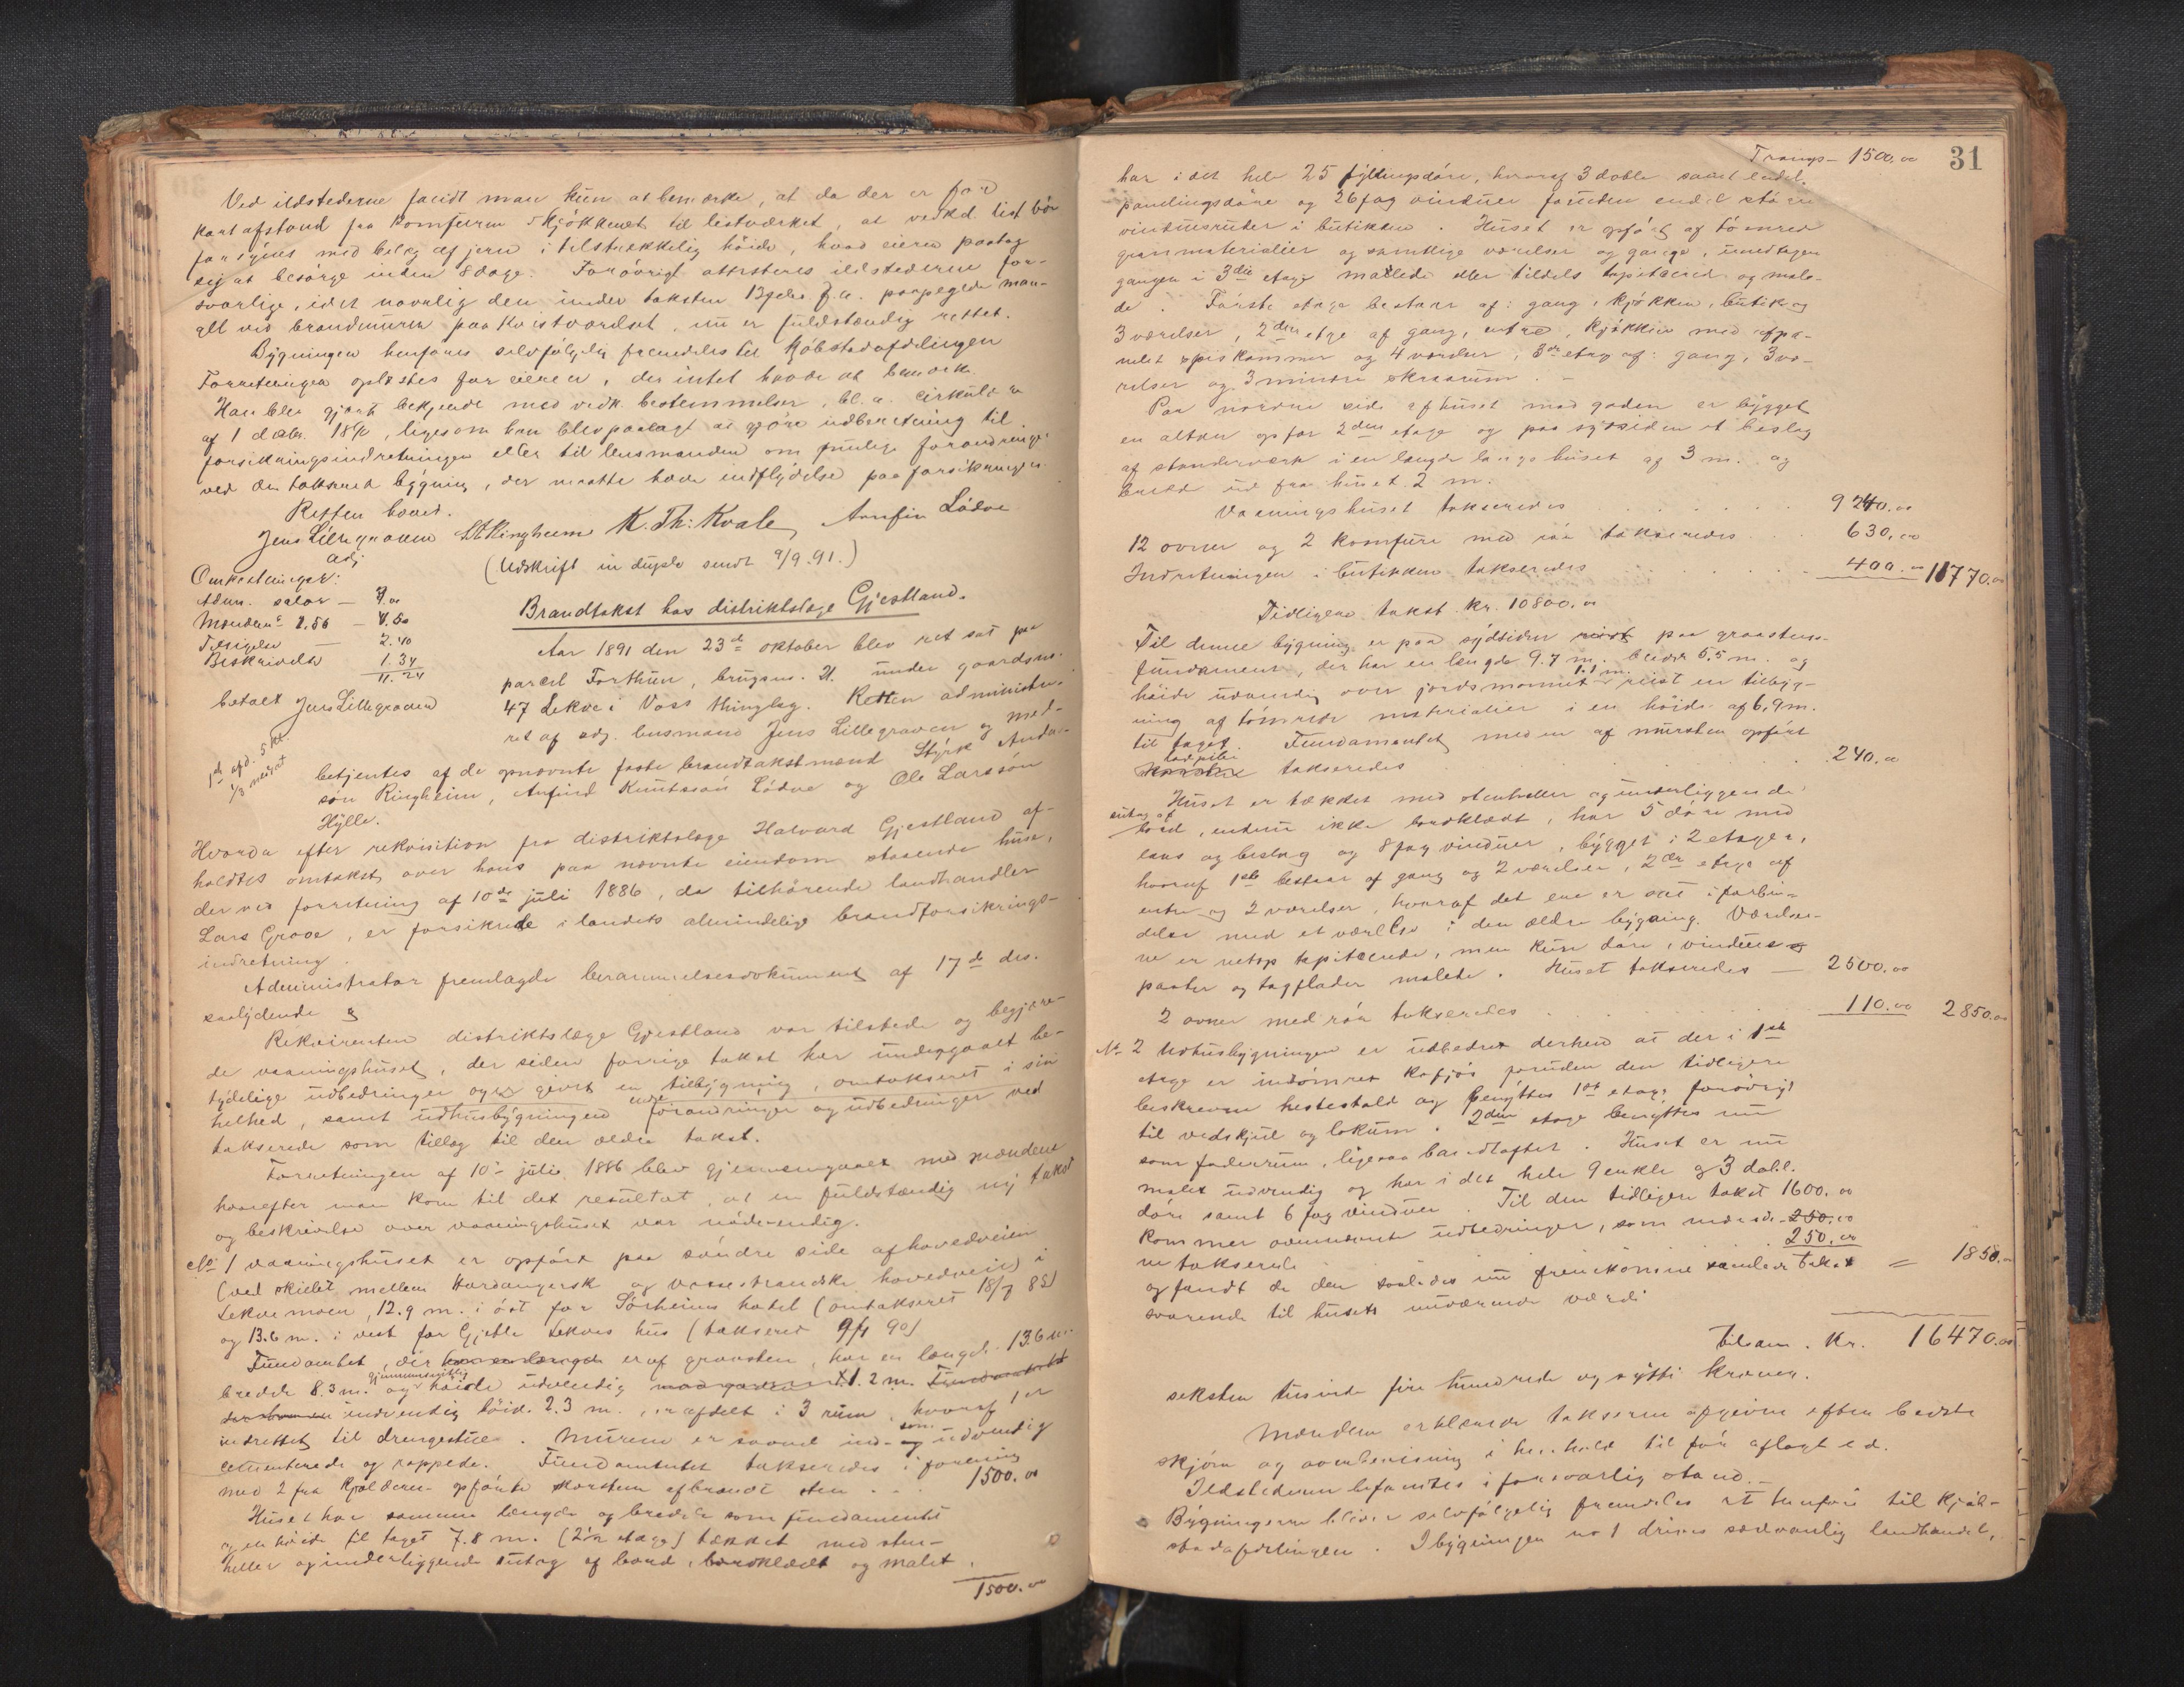 Ved ildstederne fandt man kun at bemærke, at da der er for
kort afstand fra komfuren i kjøkkenet til listværket, at vedkd. list bør
forsynes med belæg af jern i tilstrækkelig høide, hvad eieren paatog
sig at besørge inden 8 dage. Forøvrigt attesteres ildstederne for-
svarlige, idet navnlig den under taksten 13 febr. f.a. paapegede man-
gel ved brandmuren paa kvistværelset, nu er fuldstændig rettet.
Bygningen henføres selvfølgelig fremdeles til Kjøbstadafdelingen
Forretningen oplæstes for eieren, der intet havde at bemærke.
Han blev gjort bekjendt med vedk. bestemmelser, bl. a. cirkulære
af 1 decbr. , ligesom han blev paalagt at gjøre indberetning til
forsikringsindretningen eller til lensmanden om mulige forandringer
ved den takserede bygning, der maatte have indflydelse paa forsikringen.
Retten hævet.
Jens Lillegraven StRingheim K. Th: Kvale Arnfin Lødve
adj
(Udskrift in duplo sendt 9/9.91.)
Omkostninger:
Adm. salær —
Mændene 2.50 — 7.50
Tilsigelse — 2.40
Beskrivelse 1.34
11.24
betalt Jens Lillegraven
Brandtakst hos distriktslæge Gjestland.
Aar 1891 den 23de oktober blev ret sat paa
parcel Forthun, brugsno. 21 under gaardsno.
47 Lekve i Voss thinglag. Retten administre-
ret af adj. lensmand Jens Lillegraven og med-
1ste afd. 5 kl.
1/3 nedsat
betjentes af de opnævnte faste brandtakstmænd Styrk Anders-
søn Ringheim, Anfind Knutssøn Lødve og Ole Larssøn
Hylle.
Hvorda efter rekvisition fra distriktslæge Halvard Gjestland af-
holdtes omtakst over hans paa nævnte eiendom staaende huse,
der ved forretning af 10de juli 1886, da tilhørende landhandler
Lars Grove, er forsikrede i landets almindelige brandforsikrings-
indretning.
Administrator fremlagde berammelsesdokument af 17de ds.
saalydende
Rekvirenten distriktslæge Gjestland var tilstede og begjære-
de vaaningshuset, der siden forrige takst har undergaaet be-
tydelige udbedringer og er gjort en tilbygning, omtakseret i sin
helhed, samt udhusbygningens forandringer og udbedringer ved
takserede som tillæg til den ældre takst.
Forretningen af 10de juli 1886 blev gjennemgaaet med mændene
hvorefter man kom til det resultat, at en fuldstændig ny takst
og beskrivelse over vaaningshuset var nødvendig.
No 1 vaaningshuset er opført paa søndre side af hovedveien
(ved skillet mellem Hardangersk og vossestrandske hovedveie) i
Lekvemoen, 12.9 m. i øst for Sørheims hotel (omtakseret 18/7 85)
og 13.6 m. i vest for Gjertle Lekves hus (takseret 9/4 90)
Fundamentet, der har en længde er af graasten, har en længde 13.6 m.
bredde 8.3 m. og gjennemsnitlig høide udvendig mod gaden 1.2 m. Fundamentet
indvendig høid. 2.3 m., er afdelt i 3 rum, hvoraf 1 er
indrettet til drengestue. Murene er saavel ind- som udvendig
cementerede og rappede. Fundamentet takseredes i forening
med 2 fra kjælderen opførte skorstene af brændt sten . . . 1500.00
Huset har samme længde og bredde som fundamentet
og en høide til taget 7.8 m. (2½ etage) tækket med sten-
heller og underliggende sutag af bord, bordklædt og malet.
1500.00
31
Transp— 1500.00
har i det hele 25 fyldingsdøre, hvoraf 3 doble samt endel
panelingsdøre og 26 fag vinduer foruden endel større
vinduesruter i butikken. Huset er opført af tømret
granmaterialier og samtlige værelser og gange, undtagen
gangen i 3die etage malede eller tildels tapetserede og male-
de. Første etage bestaar af: gang, kjøkken, butik og
3 værelser, 2den etage af gang, entre, kjøkken med afpa-
nelet spiskammer og 4 værelser, 3die etage af: gang, 3 væ-
relser og 3 mindre skraarum. —
Paa nordre side af huset mod gaden er bygget
en altan op for 2den etage og paa sydsiden et beslag
af standerværk i en længde langs huset af 3 m. og
bredde ud fra huset 2 m.
Vaaningshuset takseredes . . . . . . 9240.00
12 ovner og 2 komfure med rør takseredes . . 630.00
Indretningen i butikken takseredes . . . . . 400.00 11770.00
Tidligere takst. kr. 10800.00
Til denne bygning er paa sydsiden reist paa graastens-
fundament, der har en længde 9.7 m. bredde 5.5 m. og
høide udvendig over jordsmonnet 1.1 m. reist en tilbyg-
ning af tømrede materialier i en høide af 6,9 m.
til taget. Fundamentet med en af mursten opført
takseredes . . . . . . 240.00
Huset er tækket med stenheller og underliggende
sutag af
bord, endnu ikke bordklædt, har 5 døre med
laas og beslag og 8 fag vinduer, bygget i 2 etager,
hvoraf 1ste bestaar af gang og 2 værelser, 2den etage af
entre og 2 værelser, hvoraf det ene er sat i forbin-
delse med et værelse i den ældre bygning. Værelser-
ne er netop tapitserede, men kun døre, vindues
poster og tagflader malede. Huset takseredes — 2500.00
2 ovner med rør takseredes . . . . . . 110.00 2850.00
No 2 Udhusbygningen er udbedret derhen at der i 1ste
etage er indtømret kofjøs foruden den tidligere
beskrevne hestestald og benyttes 1ste etage forøvrigt
til vedskjul og lokum. 2den etage benyttes nu
som foderrum, ligesaa baandloftet. Huset er nu
malet udvendig og har i det hele 9 enkle og 3 dobl.
døre samt 6 fag vinduer. Til den tidligere takst 1600.00
kommer ovennævnte udbedringer, som ansaaes 250.00
takseredes 250.00
og fandt da den saaledes nu fremkomne samlede takst = 1850.—
svarende til husets nuværende værdi
tilsam. kr. 16470.00
seksten tusinde fire hundrede og sytti kroner.
Mændene erklærede taksterne afgivne efter bedste
skjøn og overbevisning i henhold til før aflagt ed.
Ildstederne befandtes i forsvarlig stand.—
Bygningerne bliver selvfølgelig fremdeles at henføre til kjøb-
stadafdelingen. I bygningen no 1 drives sædvanlig landhandel,